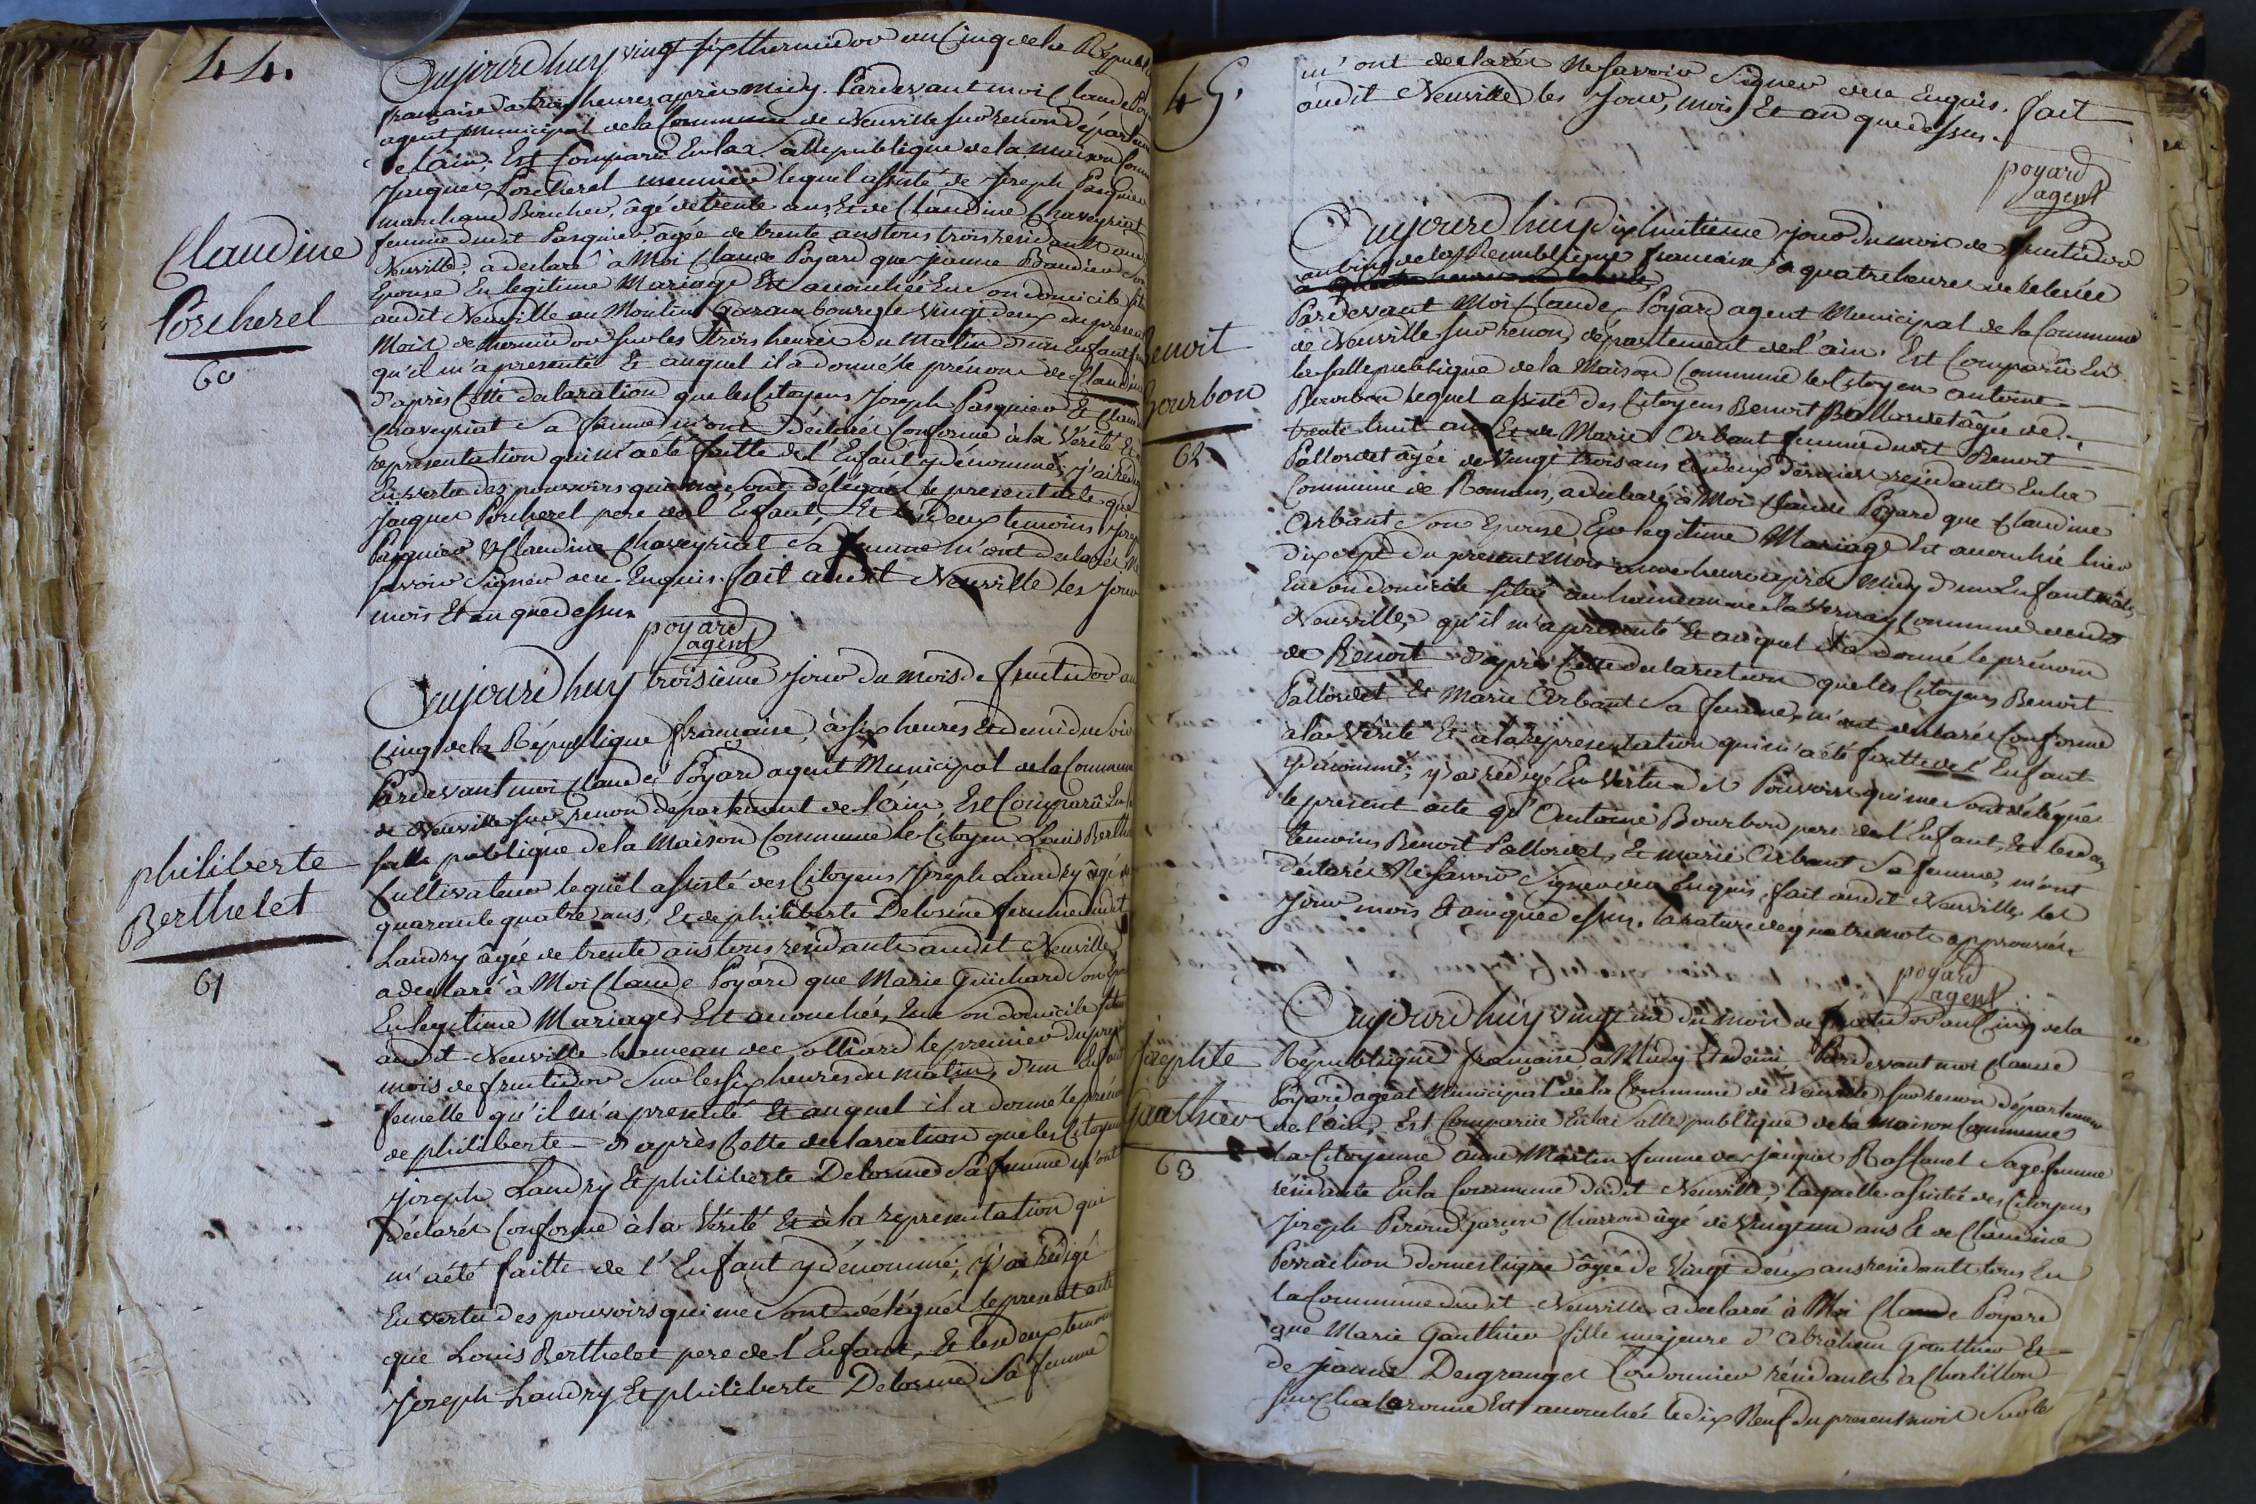 44.
Claudine
Porcherel
60
Aujourd'huy vingt six thermidor an Cinq de la Républi
française à trois heures après midy. Pardevant moi Claude Po
agent Municipal de la Commune de Neuville sur renon départem
de l'ain, Est Comparû En la salle publique de la maison Com
Jacques Porcherel meunier lequel assisté de Joseph Pasquier
marchand Boucher, âgé de trente ans, Et de Claudine Chaveyriat
femme dudit Pasquier agée de trente ans tous trois residants aud
Neuville, a déclaré à Moi Claude Poyard que jeanne Baudier son
Epouse En legitime Mariage Est accouchée En son domicile situ
audit Neuville au Moulin le vingt deux du présent
Mois de thermidor sur les trois heures du Matin d'un Enfant
qu'il m'a presenté Et auquel il a donné le prénom de Claudine
d'après Cette déclaration que les Citoyens Joseph Pasquier Et Claud
Chaveyriat sa femme m'ont Déclarés Conforme à la Vérité Et
représentation qui m'a été faitte de l'Enfant y dénommé; j'ai rédi
En vertu des pouvoirs qui me sont délégués le present acte que
Jacques Porcherel pere de l'Enfant, Et les deux temoins Josep
Pasquier & Claudine Chaveyriat sa femme m'ont declarés Ne
savoir Signer de ce Enquis. fait audit Neuville les Jour
mois Et an que dessus
poyard
agent
philiberte
Berthelet
61
Aujourd'huy troisième jour du mois de fructidor an
Cinq de la République française, à six heures Et demi du soir
Pardevant moi Claude Poyard agent Municipal de la Commune
de Neuville sur renon département de l'ain, Est Comparû En la
salle publique de la Maison Commune le Citoyen Louis Berth
Cultivateur lequel assisté des Citoyens Joseph Landry âgé de
quarante quatre ans, Et de philiberte Delorme femme dudit
Landry âgée de trente ans tous residants audit Neuville
a declaré à Moi Claude Poyard que Marie Guichard son Ep
En legitime Mariage Est accouchée, En son domicile situé
audit Neuville hameau de le premier du pres
mois de fructidor sur les six heures du matin, d'un Enfant
femelle qu'il m'a presenté Et auquel il a donné le prénom
de philiberte d'après Cette déclaration que les Citoyens
Joseph Landry Et philiberte Delorme sa femme m'ont
Déclarés Conforme à la Vérité Et à la représentation qui
m'a été faitte de l'Enfant y dénommé; j'ai rédigé
En vertu des pouvoirs qui me sont délégués le present acte
que Louis Berthelet pere de l'Enfant, Et les deux temoins
Joseph Landry Et philiberte Delorme sa femme
45.
m'ont declarés Ne savoir Signer de ce Enquis. fait
audit Neuville les Jour, mois Et an que dessus.
poyard
agent
Benoit
Bourbon
62
Aujourd'huy dix huitieme jour du mois de fructidor
an Cinq de la République française à quatre heures de relevée
Pardevant Moi Claude Poyard agent Municipal de la Commune
de Neuville sur renon, département de l'ain. Est Comparû En
la salle publique de la Maison Commune le Citoyen antoine
Bourbon lequel assisté des Citoyens Benoit Pallordet âgée de
trente huit ans Et de Marie Arbant femme dudit Benoit
Pallordet âgée de Vingt trois ans Ces deux derniers residants En la
Commune de Romans, a declaré à Moi Claude Poyard que Claudine
Arbant son Epouse En legitime Mariage Est accouchée hier
dix sept du present Mois heures après Midy d'un Enfant mâle,
En son domicile situé au hameau de la Vernay Commune dudit
Neuville, qu'il m'a presenté Et auquel il a donné le prénom
de Benoit d'après Cette declaration que les Citoyens Benoit
Pallordet Et Marie Arbant sa femme, m'ont déclarés Conforme
à la Vérité Et à la représentation qui m'a été faitte de l'Enfant
y dénommé; j'ai rédigé En vertu des Pouvoirs qui me sont délégués
le present acte qu'Antoine Bourbon pere de l'Enfant, Et les deux
temoins Benoit Pallordet, Et marie Arbant sa femme, m'ont
déclarés Ne savoir Signer de ce Enquis, fait audit Neuville les
jour mois Et an que dessus. la rature de quatre mots approuvée.
poyard
agent
josephte
Gauthier
63
Aujourd'huy vingt un du mois de fructidor an Cinq de la
République française à Midy Et demi, Pardevant moi Claude
Poyard agent Municipal de la Commune de Neuville sur renon département
de l'ain, Est Comparue En la salle publique de la Maison Commune
la Citoyenne anne Martin femme de jacques Raffanel Sage femme
résidante En la Commune dudit Neuville, laquelle assistée des Citoyens
Joseph garçon Charron âgé de Vingt un ans Et de Claudine
Perrachon domestique âgée de Vingt deux ans residants tous En
la Commune dudit Neuville, a declaré à Moi Claude Poyard
que Marie Gauthier fille majeure d'abraham Gauthier Et
de jeanne Desgranges Cordonnier résidants à Chatillon
sur Chalaronne Est accouchée le dix Neuf du present mois sur les